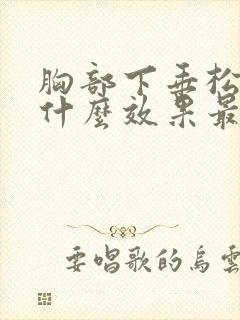 胸部下垂松
什麼效果最
要唱歌的烏雲